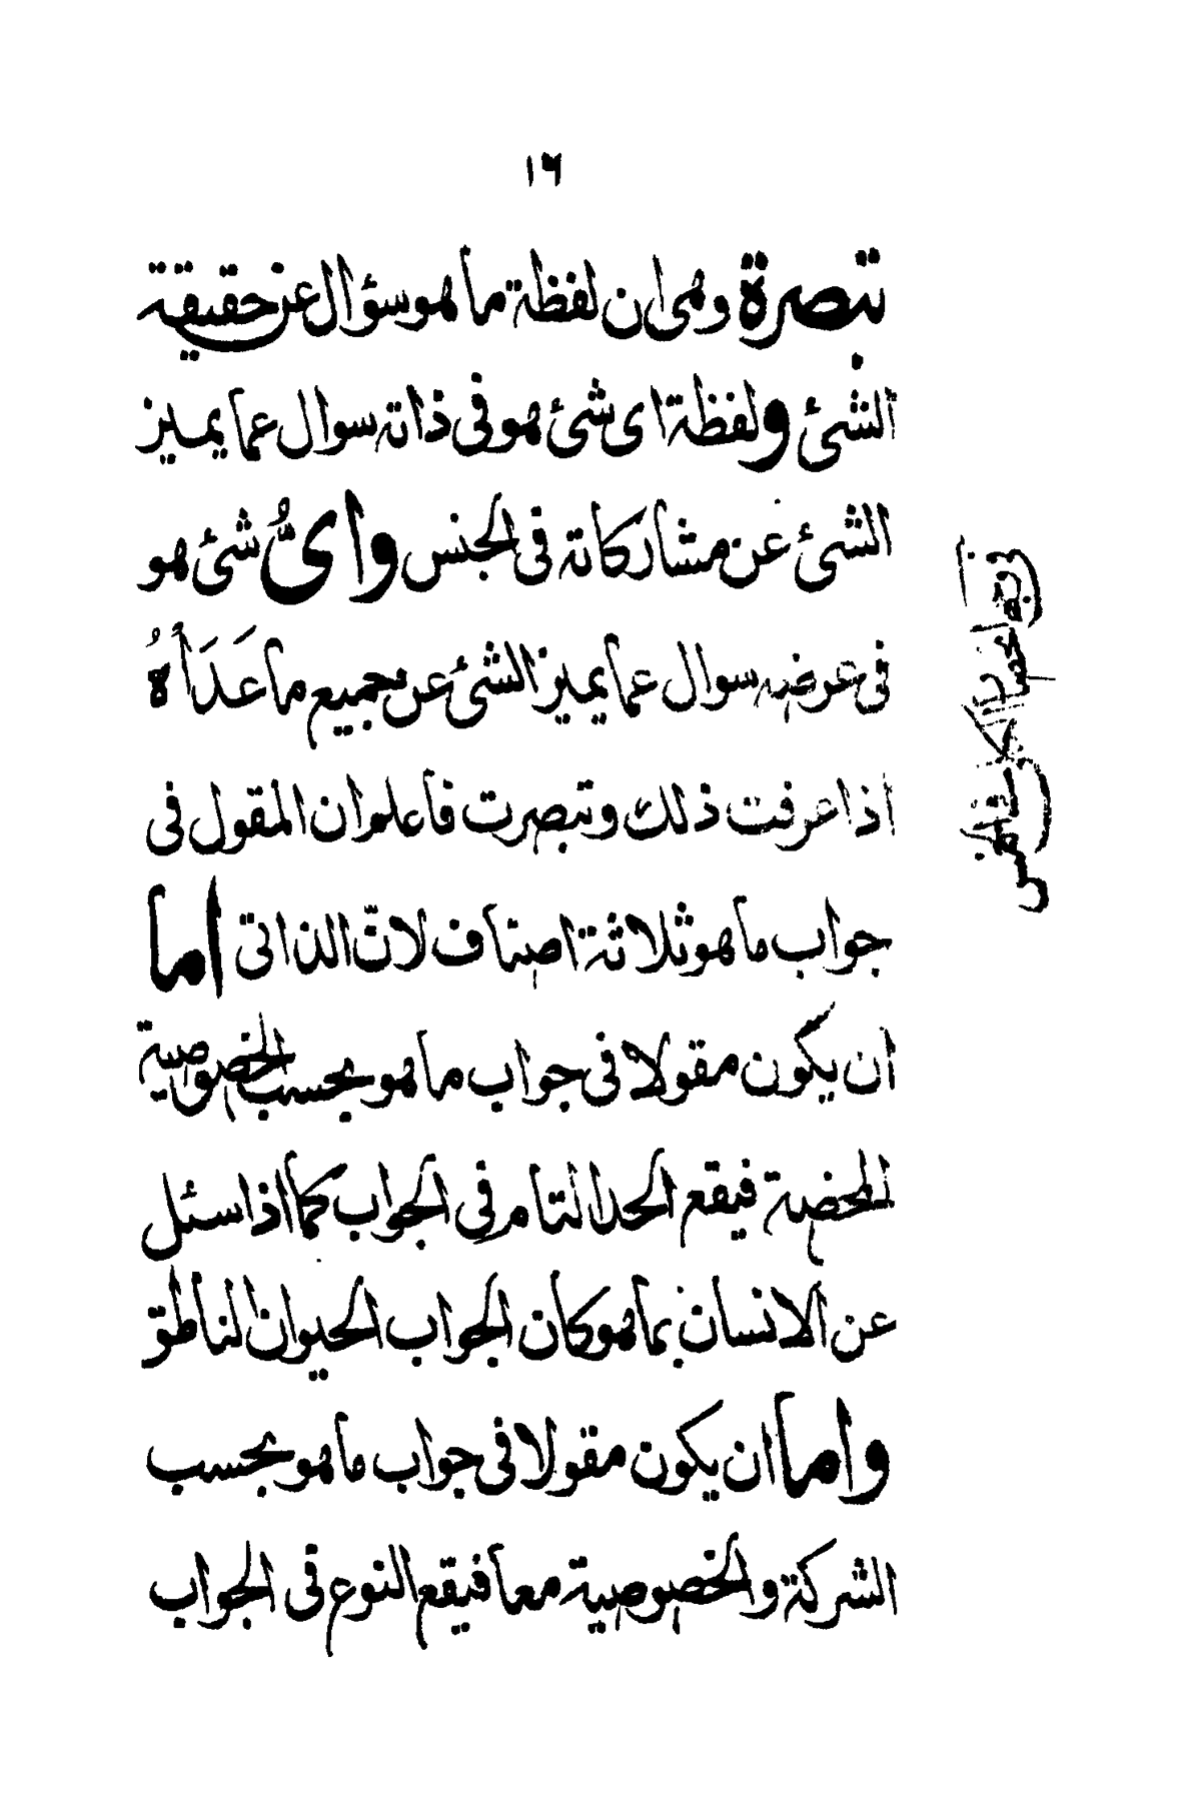 ١٦
تبصرة وهى ان لفظة ما هو سؤال عن حقيقة
الشئ ولفظة اى شئ هو فى ذاته سوال عما يميز
الشئ عن مشاركاته فى الجنس واىُّ شئ هو
فى عرضه سوال عما يميز الشئ عن جميع ما عَدَاهُ
اذا عرفت ذلك وتبصرت فاعلم ان المقول فى
جواب ما هو ثلاثة اصناف لانّ الذاتى اما
ان يكون مقولا فى جواب ما هو بحسب الخصوصية
المحضة فيقع الحد التام فى الجواب كما اذا سئل
عن الانسان بما هو كان الجواب الحيوان الناطق
واما ان يكون مقولا فى جواب ما هو بحسب
الشركة والخصوصية معا فيقع النوع فى الجواب
فى الخمس